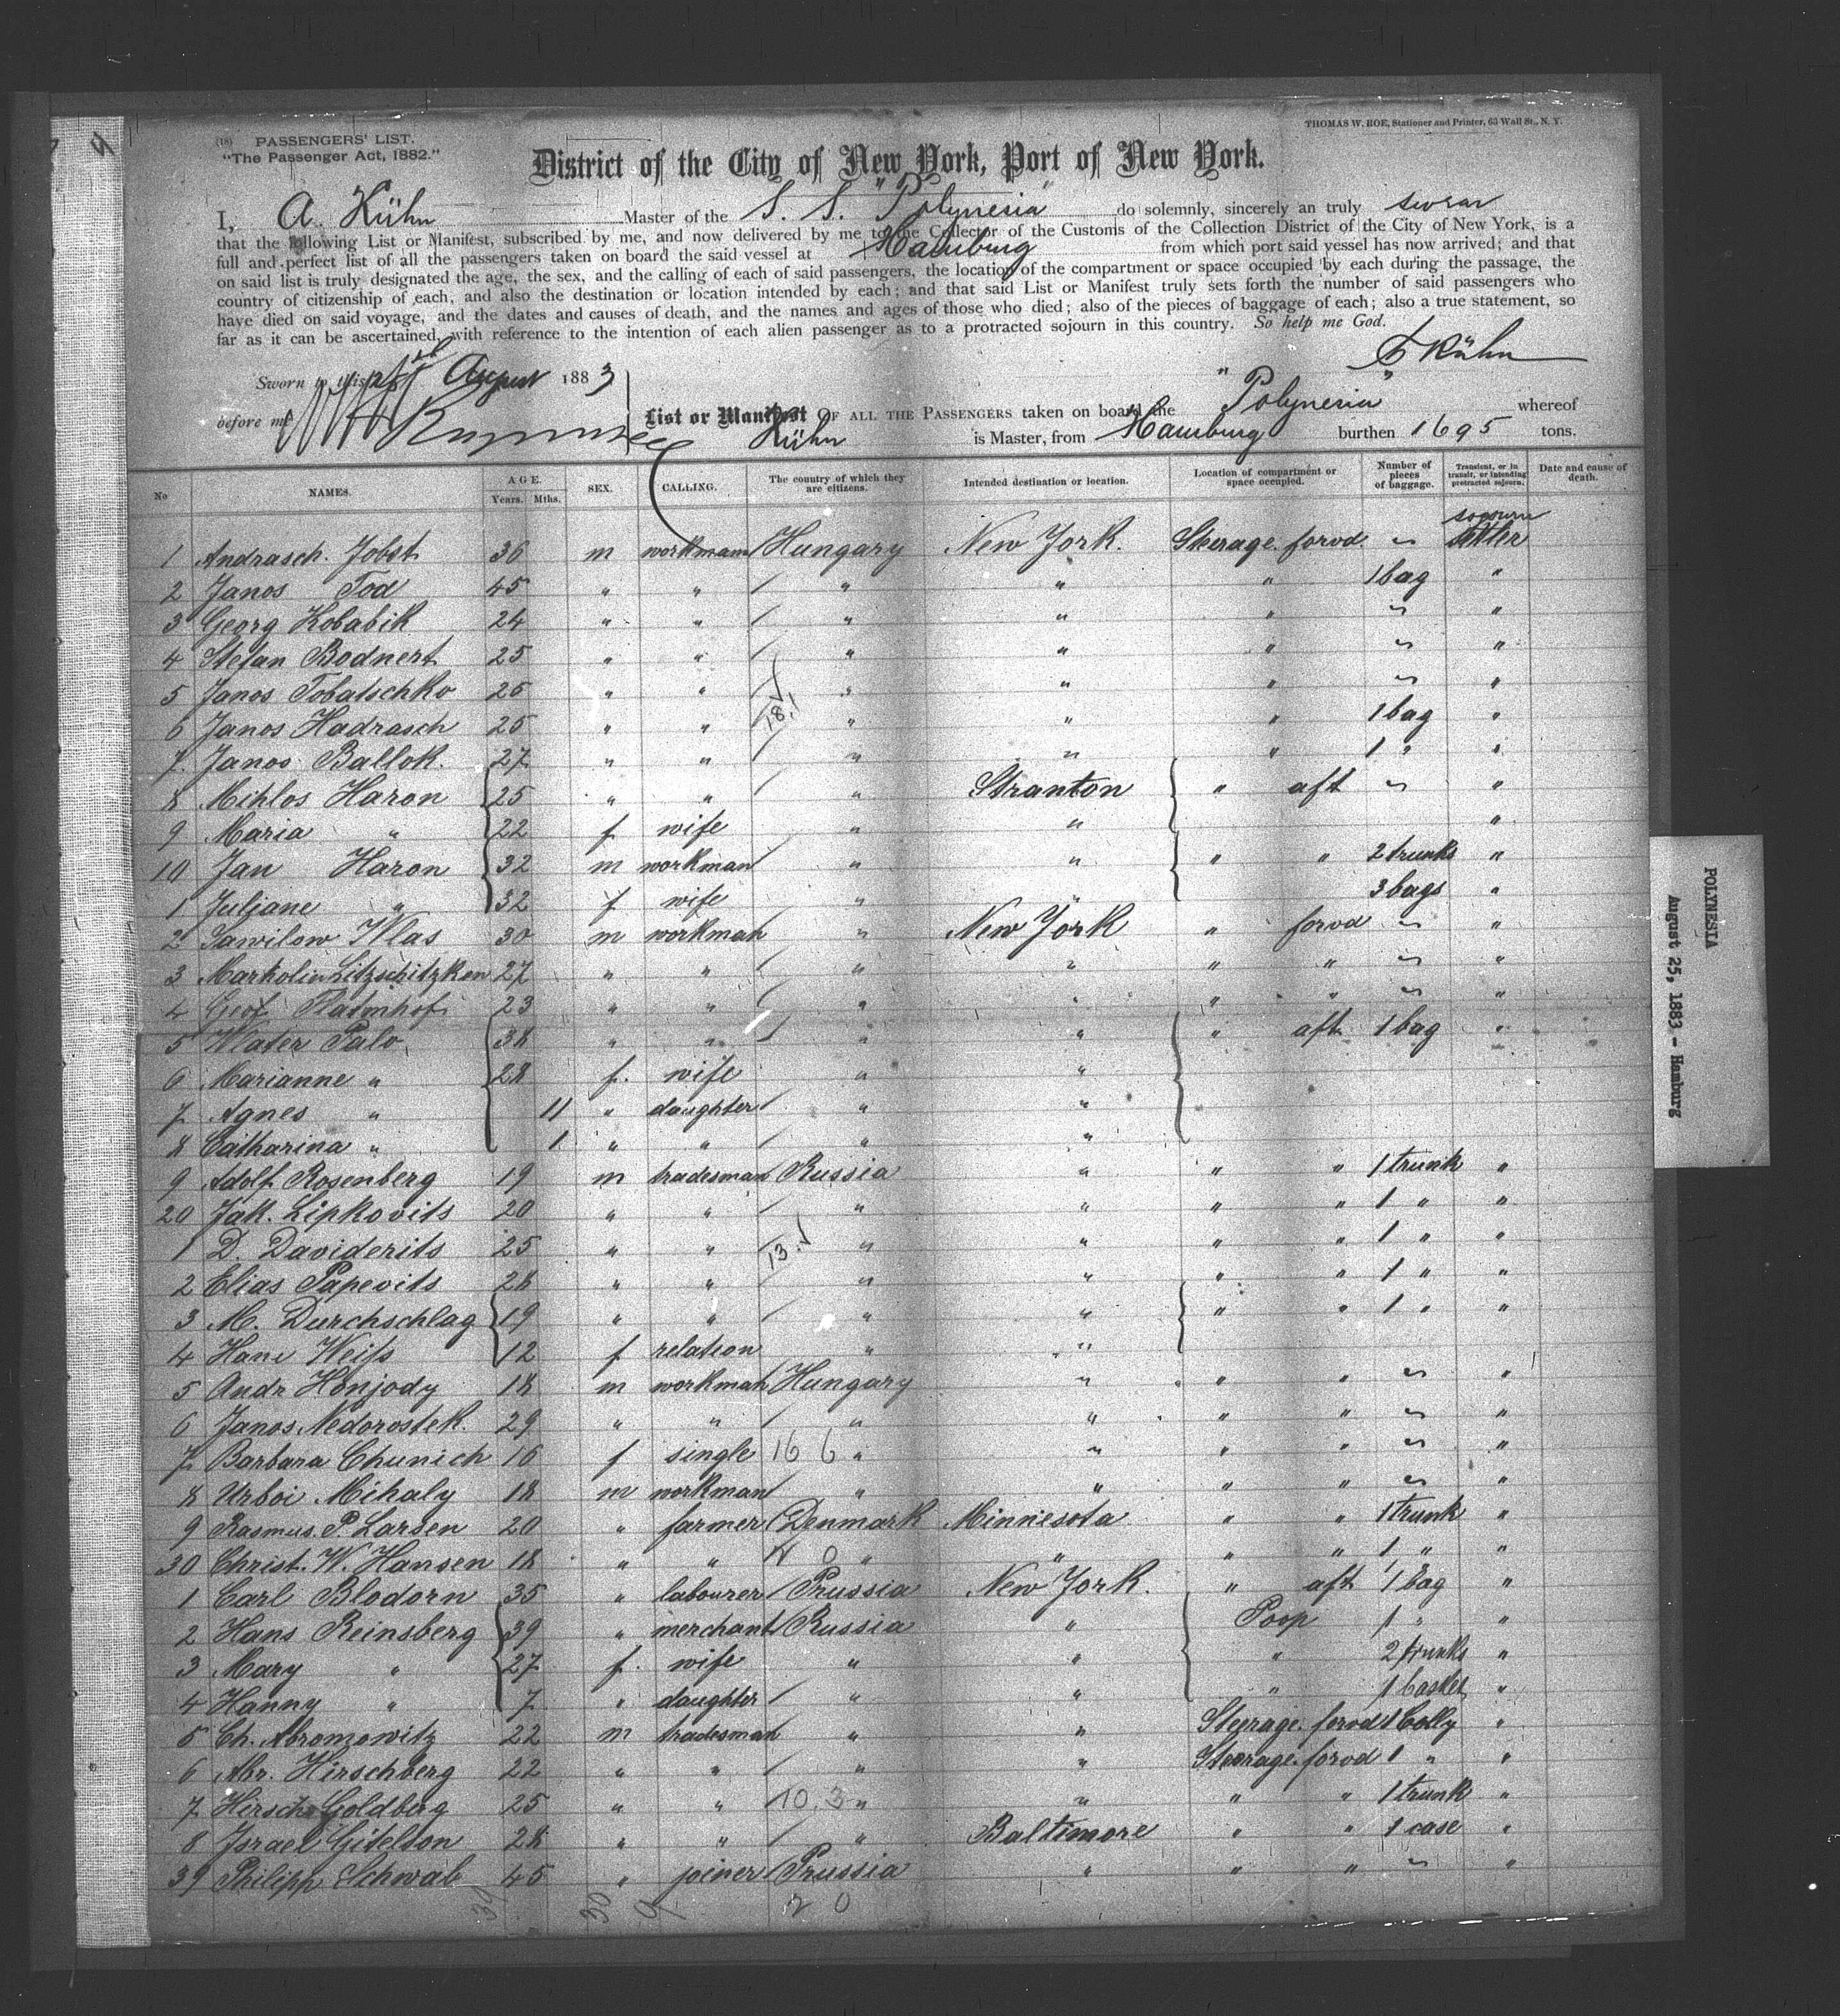 (18) PASSENGERS' LIST.
"The Passenger Act, 1882."
THOMAS W. ROE, Stationer and Printer, 63 Wall St., N. Y.
District of the City of New York, Port of New York.
I, A. Kühn Master of the S. S. "Polynesia" do solemnly, sincerely an truly swear
that the following List or Manifest, subscribed by me, and now delivered by me to the Collector of the Customs of the Collection District of the City of New York, is a
full and perfect list of all the passengers taken on board the said vessel at Hamburg from which port said vessel has now arrived; and that
on said list is truly designated the age, the sex, and the calling of each of said passengers, the location of the compartment or space occupied by each during the passage, the
country of citizenship of each, and also the destination or location intended by each; and that said List or Manifest truly sets forth the number of said passengers who
have died on said voyage, and the dates and causes of death, and the names and ages of those who died; also of the pieces of baggage of each; also a true statement, so
far as it can be ascertained, with reference to the intention of each alien passenger as to a protracted sojourn in this country. So help me God.
Kühn
Sworn to this August 1883
before me
List or Manifest OF ALL THE PASSENGERS taken on board the "Polynesia" whereof
Kühn is Master, from Hamburg burthen 1695 tons.
No NAMES. AGE. Years. Mths. SEX. CALLING. The country of which they are citizens. Intended destination or location. Location of compartment or space occupied. Number of pieces of baggage. Transient, or in transit, or intending protracted sojourn. Date and cause of death.
sojourn
1 Andrasch. Jobst 36 m workman Hungary New York. Steerage. forwd. "
2 Janos Tod 45 " " " " " 1 bag "
3 Georg Kobabik 24 " " " " " " "
4 Stefan Bodnert 25 " " " " " " "
5 Janos Tobatschko 26 " " " " " " "
18.
6 Janos Hadrasch 25 " " " " " 1 bag "
7 Janos Ballok. 27 " " " " " 1 " "
8 Mihlos Haron 25 " " " Stranton " aft " "
9 Maria " 22 f wife " " "
10 Jan Haron 32 m workman " " " " 2 trunks "
1 Juljane " 32 f wife " " 3 bags "
2 Sawilow Wlas 30 m workman " New York " forwd " "
3 Markolin Litzschitzken 27 " " " " " " " "
4 23 " " " " " " " "
5 Water Palo 38 " " " " " aft 1 bag "
6 Marianne " 28 f. wife " "
7 Agnes " 11 " daughter " "
8 Catharina " 1 " " " "
9 Adolf Rosenberg 19 m tradesman Russia " " " 1 trunk "
20 Jak. Lipkovits 20 " " " " " " 1 " "
13.
1 D. Daviderits 25 " " " " " " 1 " "
2 Elias Papevits 28 " " " " " " 1 " "
3 M. Durchschlag 19 " " " " " " 1 " "
4 Hane Weiss 12 f relation " "
5 Andr Honjody 18 m workman Hungary " " " " "
6 Janos Nedorostek. 29 " " " " " " " "
7 Barbara Chunich 16 f single 16 6 " " " " " "
8 Urboi Mihaly 18 m workman " " " " " "
9 Rasmus. P. Larsen 20 " farmer Denmark Minnesota " " 1 trunk "
30 Christ. W. Hansen 18 " " " " " " 1 " "
1 Carl Blodorn 35 " labourer Prussia New York. " aft 1 bag "
2 Hans Reinsberg 39 " merchant Russia " Poop 1 " "
3 Mary " 27 f. wife " " " 2 trunks "
4 Hanny " 7 " daughter " " " 1 basket "
5 Ch. Abromowitz 22 m tradesman " " Steerage. forwd 1 Colly "
6 Abr. Hirschberg 22 " " " " Steerage. forwd 1 " "
7 Hirsch Goldberg 25 " " 10.3 " " " " 1 trunk "
8 Israel Gitelson 28 " " " Baltimore " " 1 case "
39 Philipp Schwab 45 " joiner Prussia " " " " "
39 30 9 2 0
POLYNESIA
August 25, 1883 - Hamburg